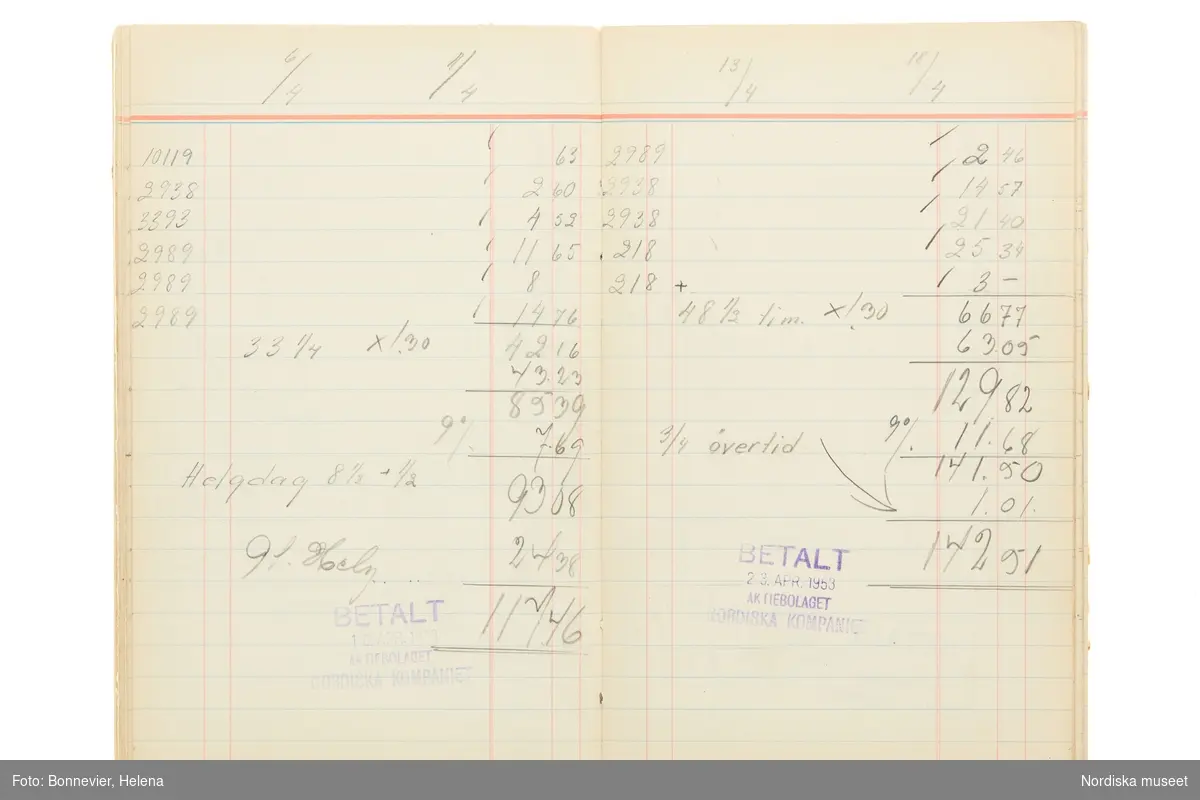 6/4 11/4
10119 63
2938 2 60
3393 4 52
2989 11 65
2989 8
2989 14 76
33 1/4 x 1.30 42 16
43.23
85 39
9% 7.69
Helgdag 8 1/2 + 1/2 93 08
24 38
BETALT
AKTIEBOLAGET
NORDISKA KOMPANIET
117.46
13/4 18/4
2989 2 46
2938 14 57
2938 21 40
218 25 34
218 + 3 -
48 1/2 tim. x 1.30 66 77
63.05
129 82
3/4 övertid 9% 11.68
141.50
1.01.
142 51
BETALT
23. APR. 1953
AKTIEBOLAGET
NORDISKA KOMPANIET
Foto: Bonnevier, Helena
Nordiska museet